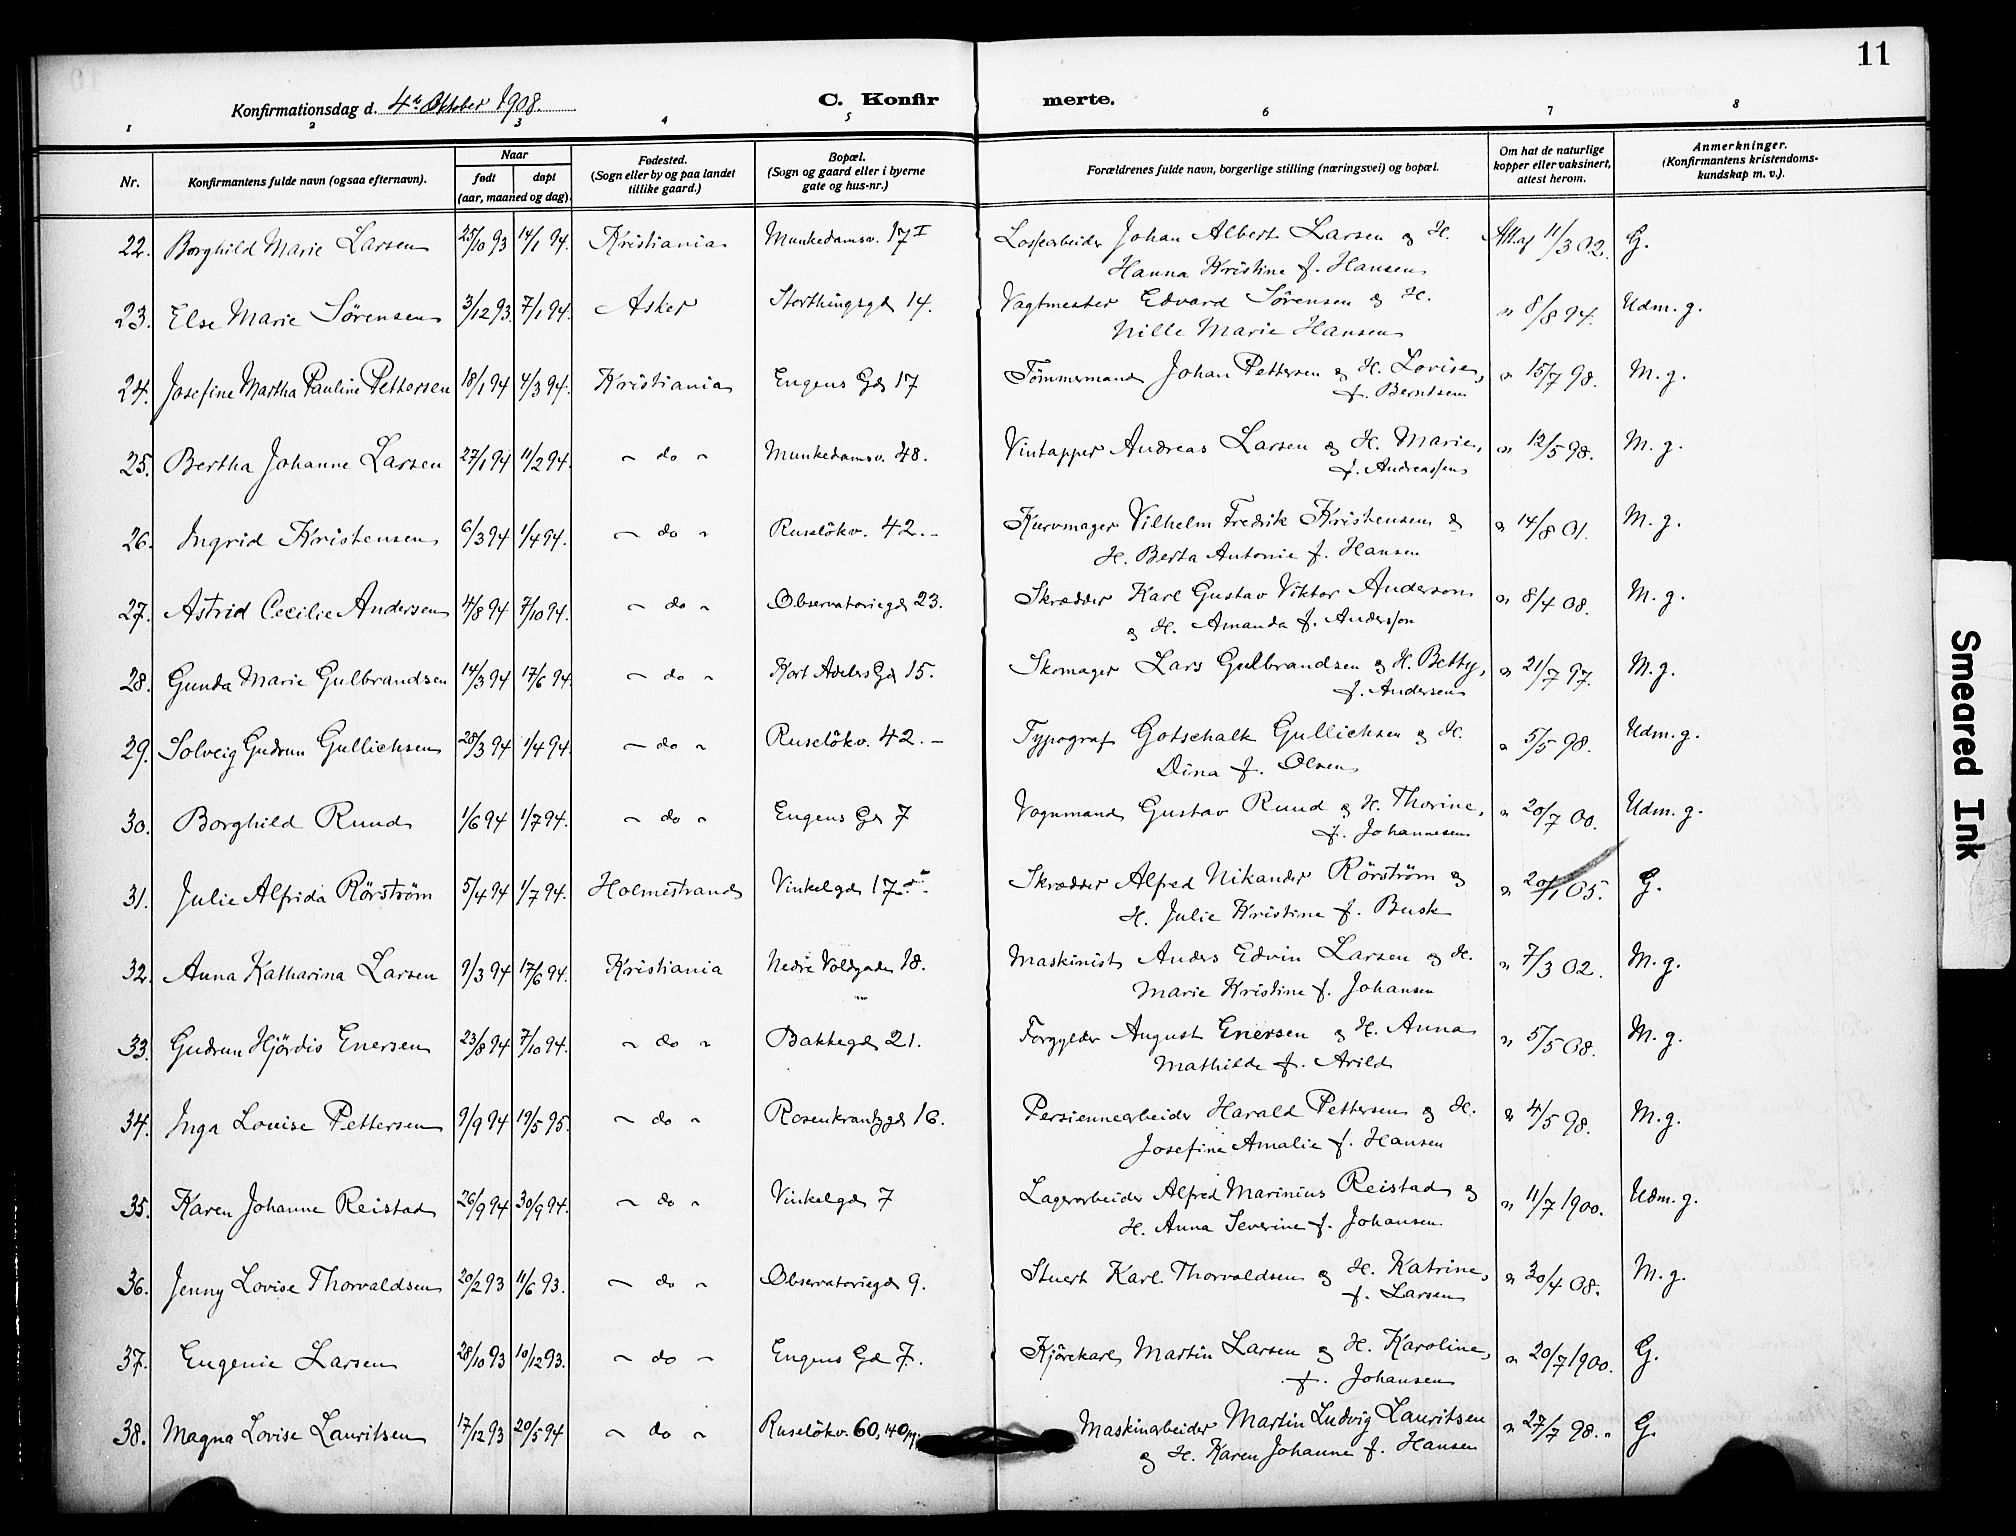 11
Konfirmationsdag d. 4de Oktober 1908.
C. Konfir merte.
1 2 3 4 5 6 7 8
Nr.
Konfirmantens fulde navn (ogsaa efternavn).
Naar
født døpt
(aar, maaned og dag).
Fødested.
(Sogn eller by og paa landet
tillike gaard.)
Bopæl.
(Sogn og gaard eller i byerne
gate og hus-nr.)
Forældrenes fulde navn, borgerlige stilling (næringsvei) og bopæl.
Om hat de naturlige
kopper eller vaksinert,
attest herom.
Anmerkninger.
(Konfirmantens kristendoms-
kundskap m. v.).
22. Borghild Marie Larsen 25/10 93 14/1 94. Kristiania Munkedamsv. 17 I Lossearbeider Johan Albert Larsen og H. Att. af 11/3 02. G.
Hanna Kristine f. Hansen
23. Else Marie Sörensen 3/12 93. 7/1 94. Asker Storthingsgd 14. Vagtmester Edvard Sörensen og H. " 8/8 94. Udm. g.
Nille Marie Hansen
24. Josefine Martha Pauline Pettersen 18/1 94 4/3 94. Kristiania Engens Gd 17 Tömmermand Johan Pettersen og H. Lovise, " 15/7 98. M. g.
f. Berntsen
25. Bertha Johanne Larsen 27/1 94 11/2 94. - do - Munkedamsv. 48. Vintapper Andreas Larsen og H. Marie, " 12/5 98. M. g.
f. Andreassen
26. Ingrid Kristensen 6/3 94 1/4 94. - do - Ruselökv. 42. - Kurvmager Vilhelm Fredrik Kristensen og " 14/8 01. M. g.
H. Berta Antonie f. Hansen
27. Astrid Cecilie Andersen 4/8 94 7/10 94. - do - Observatoriegd 23. Skrædder Karl Gustav Viktor Anderson " 8/4 08. M. g.
og H. Amanda f. Andersson
28. Gunda Marie Gulbrandsen 14/3 94 17/6 94. - do - Kort Adelers Gd 15. Skomager Lars Gulbrandsen og H. Betty, " 21/7 97. M. g.
f. Andersen
29. Solveig Gudrun Gullichsen 28/3 94 1/4 94. - do - Ruselökv. 42. - Typograf Gotschalk Gullichsen og H. " 5/5 98. Udm. g.
Dina f. Olsen
30. Borghild Ruud 1/6 94 1/7 94. - do - Engens Gd 7 Vognmand Gustav Ruud og H. Thorine, " 20/7 00. Udm. g.
f. Johannesen
31. Julie Alfrida Rörström 5/4 94 1/7 94. Holmestrand Vinkelgd 17 Skrædder Alfred Nikander Rörström og " 20/1 05. G.
H. Julie Kristine f. Busk
32. Anna Katharina Larsen 9/3 94 17/6 94. Kristiania Nedre Voldgade 18. Maskinist Anders Edvin Larsen og H. " 7/3 02. M. g.
Marie Kristine f. Johansen
33. Gudrun Hjördis Enersen 23/8 94 7/10 94. - do - Bakkegd 21. Forgylder August Enersen og H. Anna " 5/5 08. M. g.
Mathilde f. Arild
34. Inga Louise Pettersen 9/9 94 19/5 95. - do - Rosenkrantzgd 16. Persiennearbeider Harald Pettersen og H. " 4/5 98. M. g.
Josefine Amalie f. Hansen
35. Karen Johanne Reistad 26/9 94 30/9 94. - do - Vinkelgd 7 Lagerarbeider Alfred Marinius Reistad og " 11/7 1900. Udm. g.
H. Anna Severine f. Johansen
36. Jenny Lovise Thorvaldsen 20/2 93 11/6 93. - do - Observatoriegd 9. Stuert Karl Thorvaldsen og H. Katrine, " 30/4 08. M. g.
f. Larsen
37. Eugenie Larsen 28/10 93 10/12 93. - do - Engens Gd 7. Kjörekarl Martin Larsen og H. Karoline, " 20/7 1900. G.
f. Johansen
38. Magna Lovise Lauritsen 17/12 93 20/5 94 - do - Ruselökv. 60, Maskinarbeider Martin Ludvig Lauritsen " 27/7 98. " G.
og H. Karen Johanne f. Hansen
Smeared Ink